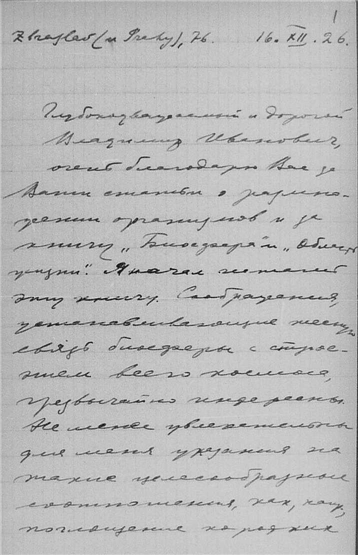 1
Zbraslav (u Prahy), 76. 16.XII.26.
Глубокоуважаемый и дорогой
Владимир Иванович,
очень благодарю Вас за
Ваши статьи о размно-
жении организмов и за
книгу „Биосфера“ и „Область
жизни“. Я начал читать
эту книгу. Соображения,
устанавливающие тесную
связь биосферы с строе-
нием всего космоса,
чрезвычайно интересны.
Не менее увлекательны
для меня указания на
такие целесообразные
соотношения, как, напр.,
поглощение коротких